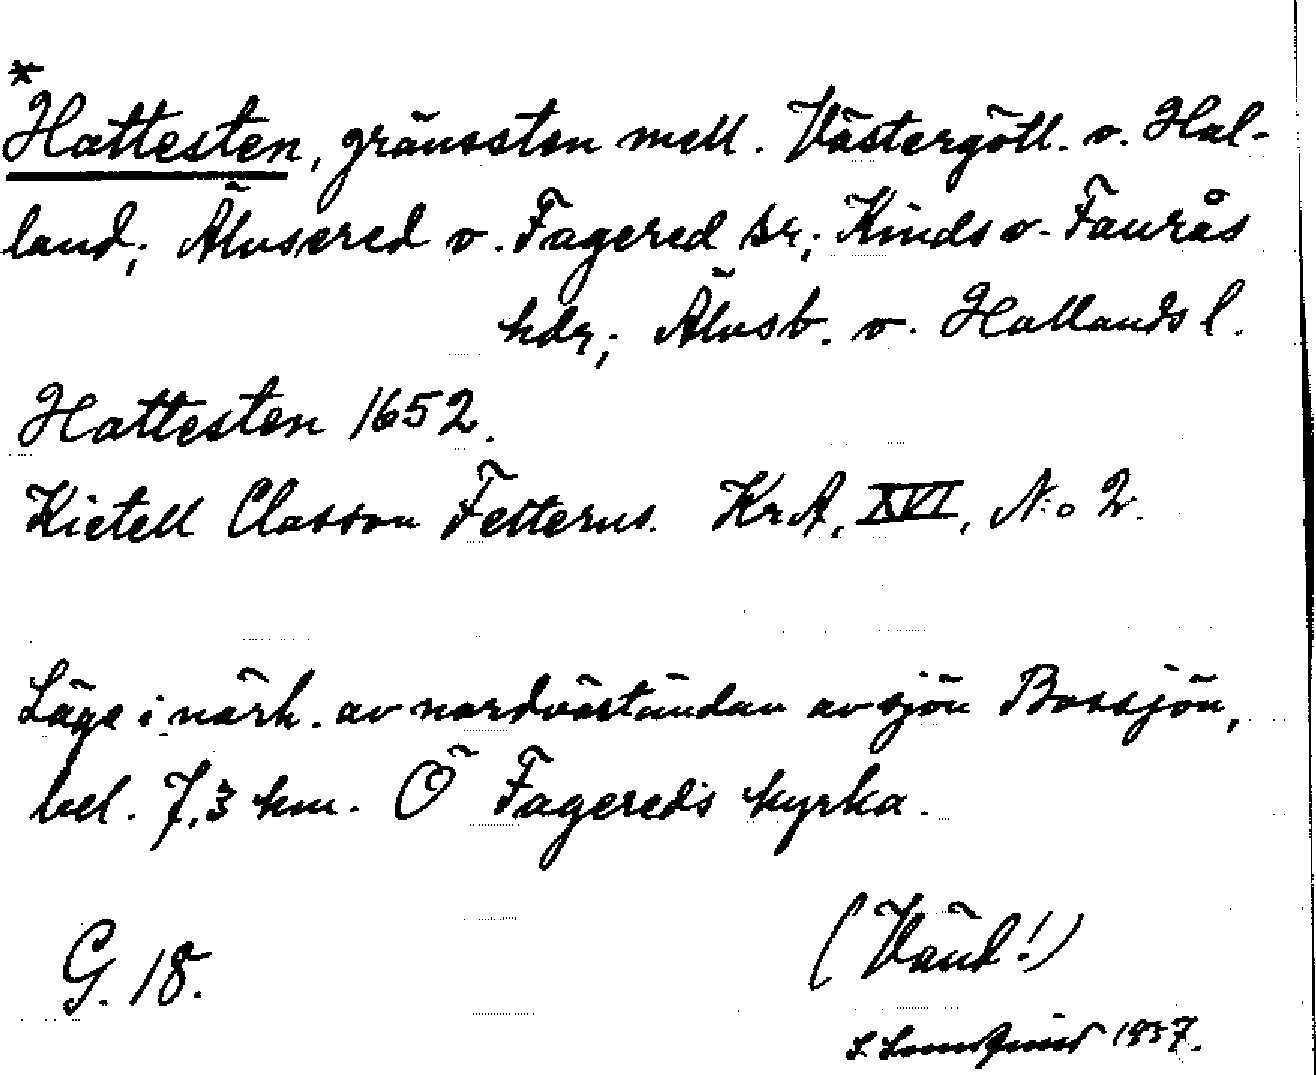 *
Hattesten, gränssten mell. Västergötl. o. Hal-
land; Älvsered o. Fagered snr; Kinds o. Faurås
hdr; Älvsb. o. Hallands l.
Hattesten 1652.
Kietell Classon Felterus. KrA, XVI, N:o 2.
Läge i närh. av nordväständan av sjön Bossjön,
vel. 7,3 km. Ö Fagereds kyrka.
G. 18.
(Vänd!)
1937.